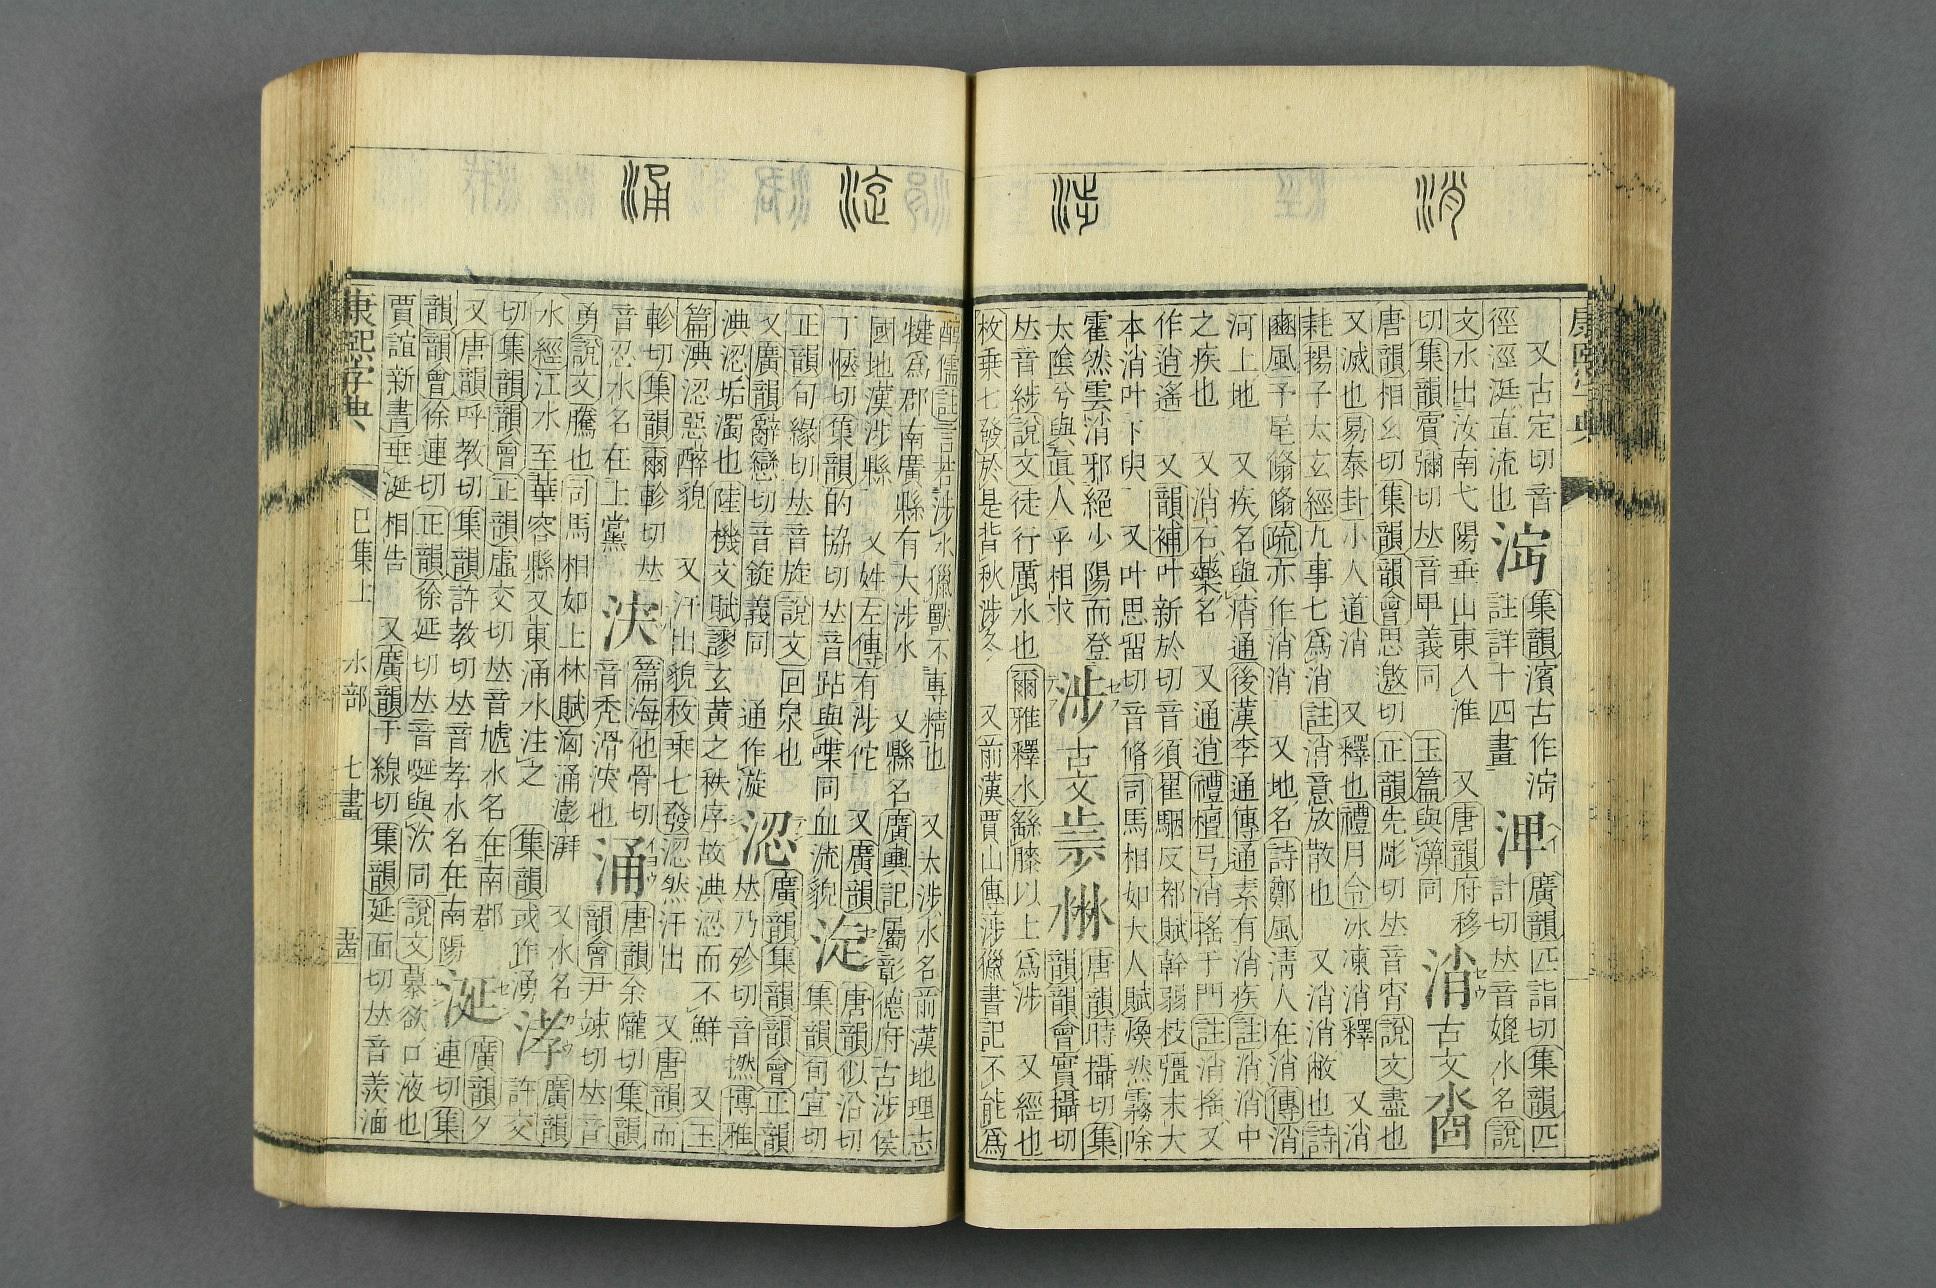 消
涉
涀
涌
康熙字典
又古定切音
徑涇涏直流也
集韻濱古作
註詳十四畫
渒
廣韻匹詣切集韻匹
計切𠀤音媲水名說
文水出汝南弋陽垂山東入淮 又唐韻府移
切集韻賓彌切𠀤音𤰞義同 玉篇與㵗同
消
古文
唐韻相幺切集韻韻會思邀切正韻先彫切𠀤音宵說文盡也
又滅也易泰封小人道消 又釋也禮月令冰凍消釋 又消
耗揚子太玄經九事七爲消註消意放散也 又消消敝也詩
豳風予尾翛翛疏亦作消消 又地名詩鄭風淸人在消傳消
河上地 又疾名與痟通後漢李通傳通素有消疾註消消中
之疾也 又消石藥名 又通逍禮檀弓消搖于門註消搖又
作逍遙 又韻補叶新於切音須崔駰反都賦幹弱枝彊末大
本消叶下臾 又叶思留切音脩司馬相如大人賦煥然霧除
霍然雲消邪絕少陽而登
太陰兮與眞人乎相求
涉
古文
唐韻時攝切集
韻韻會實攝切
𠀤音𦁗說文徒行厲水也爾雅釋水繇膝以上爲涉 又經也
枚乗七發於是背秋涉冬 又前漢賈山傳涉獵書記不能爲
醇儒註言若涉水獵獸不專精也 又大涉水名前漢地理志
犍爲郡南廣縣有大涉水 又縣名廣輿記屬彰德府古涉侯
國地漢涉縣 又姓左傳有涉佗 又廣韻
丁愜切集韻的協切𠀤音跕與喋同血流貌
淀
唐韻似沿切
集韻旬宣切
正韻旬緣切𠀤音旋說文回泉也
又廣韻辭戀切音鏇義同 通作漩
涊
廣韻集韻韻會正韻
𠀤乃殄切音撚博雅
淟涊垢濁也陸機文賦謬玄黃之秩序故淟涊而不鮮 又玉
篇淟涊惡醉貌 又汗出貌枚乗七發涊然汗出 又唐韻而
軫切集韻爾軫切𠀤
音忍水名在上黨
篇海他骨切
音禿滑㳿也
涌
唐韻余隴切集韻
韻會尹竦切𠀤音
勇說文滕也司馬相如上林賦洶涌澎湃 又水名
水經江水至華容縣又東涌水注之 集韻或作湧
涍
廣韻
許交
切集韻韻會正韻虛交切𠀤音虓水名在南郡
又唐韻呼教切集韻許教切𠀤音孝水名在南陽
涎
廣韻夕
連切集
韻韻會徐連切正韻徐延切𠀤音唌與㳄同說文慕欲口液也
賈誼新書垂涎相告 又廣韻于線切集韻延面切𠀤音羨湎
康熙字典
巳集上 水部 七畫